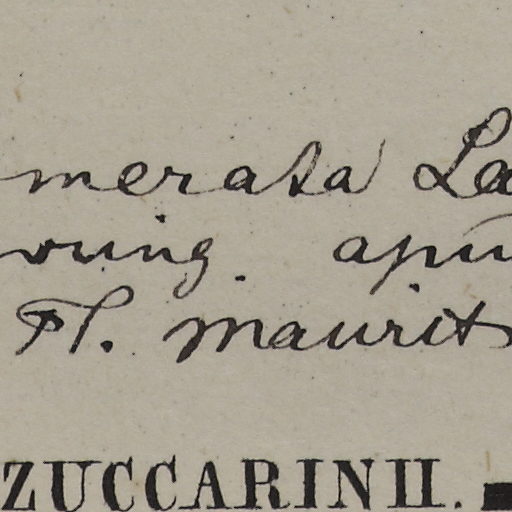 merata La
oring. apu
Fl. maurit
ZUCCARINII.